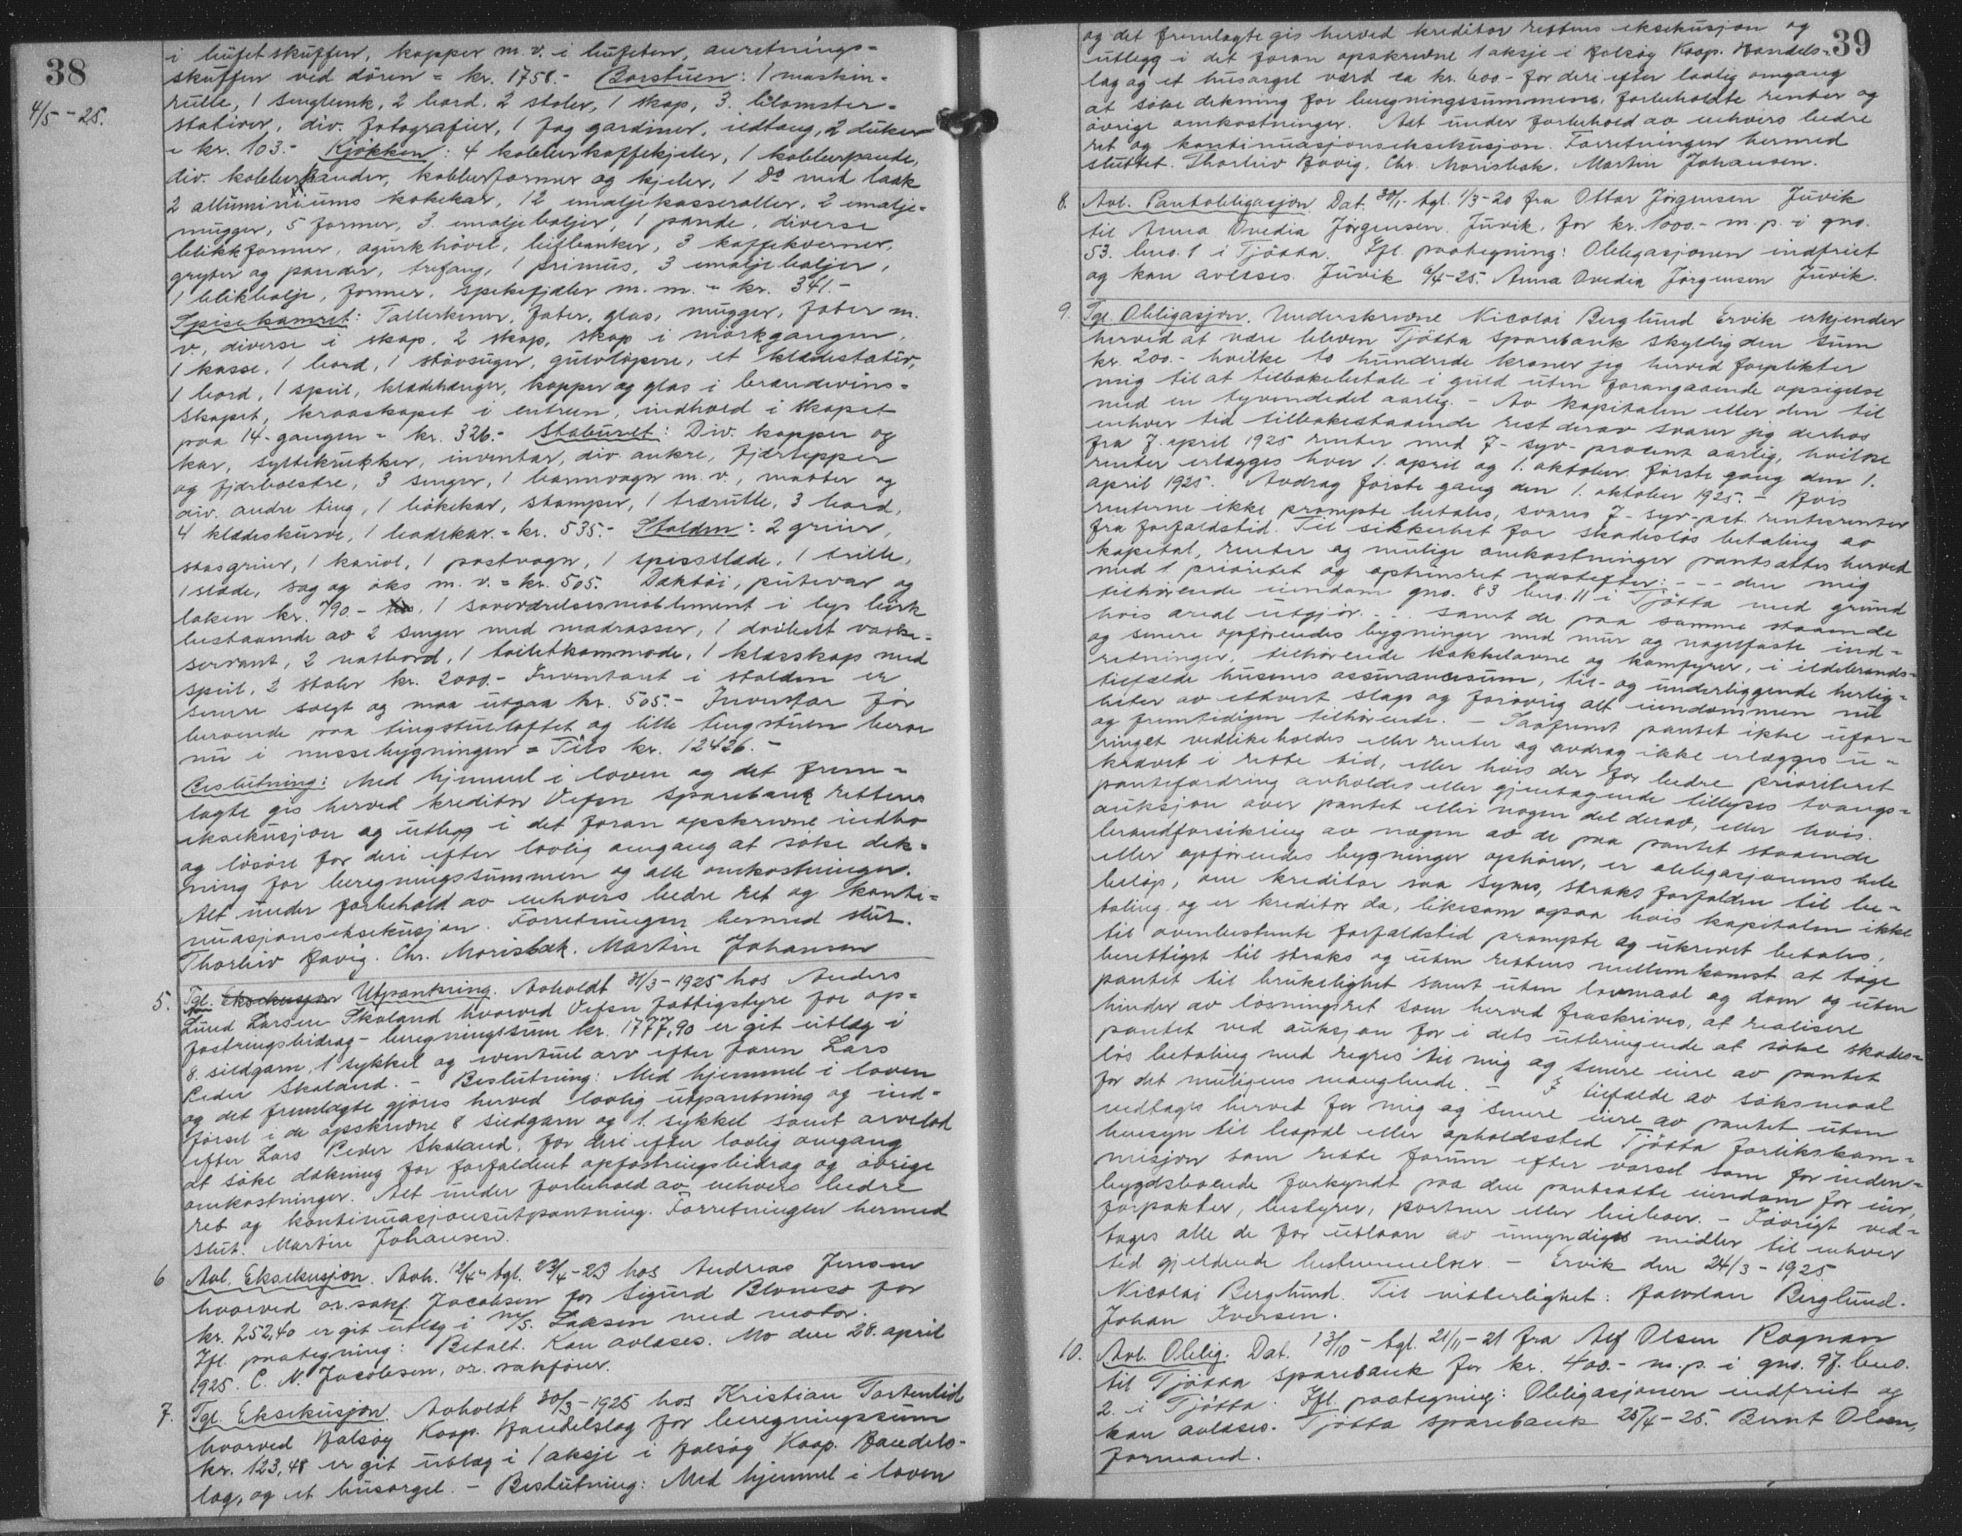 38
4/5-25.
i bufetskuffen, kopper m. v. i bufeten, anretnings-
skuffen ved dören = kr. 1758.- Borstuen: 1 maskin-
rulle, 1 sengbenk, 2 bord. 2 stoler, 1 skap, 3. blomster-
stativer, div. fotografier, 1 fag gardiner, ildtang, 2 duker
= kr. 103.- Kjökken: 4 kobberkaffekjeler, 1 kobberpande,
div. kobberpander, kobberformer og kjeler, 1 Do med laak
2 alluminiums kokekar, 12 emaljekasseroller, 2 emalje-
mugger, 5 former, 3. emaljeboljer, 1 pande, diverse
blikkformer, agurkhövel, bifbanker, 3 kaffekverner,
gryter og pander, trefang, 1 primus, 3 emaljeboljer,
1 blikbolje, former, spekefjeler m. m. = kr. 341.-
Spisekamret: Tallerkener, fater, glas, mugger, fater m.
v., diverse i skap, 2 skap, skap i mörkgangen,
1 kasse, 1 bord, 1 stövsuger, gulvlöpere, et klædestativ,
1 bord, 1 speil, klædehænger, kopper og glas i brændevins-
skapet, kraaskapet i entreen, indhold i skapet
paa 14-gangen = kr. 326.- Staburet: Div. kopper og
kar, syltekrukker, inventar, div. ankre, fjærtepper
og fjærbolstre, 3 senger, 1 barnvogn m. v., matter og
div. andre ting, 1 bökekar, stamper, 1 trærulle, 3 bord,
4 klædeskurve, 1 badekar = kr. 535.- Stalden: 2 griner,
stasgriner, 1 kariol, 1 postvogn, 1 spisslæde, 1 trille,
1 slæde, sag og öks m. v. = kr. 505. Dæktöi, putevar og
laken kr. 790.- 1 soveværelsesmøblement i lys birk
bestaaende av 2 senger med madrasser, 1 dobbelt vaske-
servant, 2 natbord, 1 toiletkommode, 1 klæsskap med
speil, 2 stoler kr. 2000.- Inventaret i stalden er
senere solgt og maa utgaa kr. 505.- Inventar för
beroende paa tingstuloftet og lille tingstuen beror
nu i messebygningen = Tils kr. 12426.-
Beslutning: Med hjemmel i loven og det frem-
lagte gis herved kreditor Vefsn Sparebank rettens
eksekusjon og utlegg i det foran opskrevne indbo
og lösöre for deri efter lovlig omgang at söke dek-
ning for beregningssummen og alle omkostninger.
Alt under forbehold av enhvers bedre ret og konti-
nuasjonseksekusjon. Forretningen hermed slut.
Thorleiv Bavig. Chr. Morisbak. Martin Johansen
5. Tgl. Utpantning. Avholdt 31/3-1925 hos Anders
Lund Larsen Skaland hvorved Vefsn fattigstyre for op-
fostringsbidrag - beregningssum kr. 1777,90 er git utlæg i
8. sildgarn, 1 sykkel og eventuel arv efter faren Lars
Peder Skaland. - Beslutning: Med hjemmel i loven
og det fremlagte gjöres herved lovlig utpantning og ind-
försel i de opskrevne 8 sildgarn og 1. sykkel samt arvelod
efter Lars Peder Skaland, for deri efter lovlig omgang
at söke dækning for forfaldent opfostringsbidrag og övrige
omkostninger. Alt under forbehold av enhvers bedre
ret og kontinuasjonsutpantning. Forretningen hermed
slut. Martin Johansen.
6 Avl. Eksekusjon. Avh. 12/4- tgl. 23/4-23 hos Andreas Jensen
hvorved or. sakf. Jacobsen for Sigurd Blomsø for
kr. 252,40 er git utlæg i m/s. Laksen med motor.
Ifl. paategning: Betalt. Kan avlæses. Mo den 28. april
1925. C. N. Jacobsen, or. sakförer.
7. Tgl. Eksekusjon. Avholdt 30/3-1925 hos Kristian Tortenlid
hvorved Halsøy Koop. Handelslag for beregningssum
kr. 123,48 er git utlæg i 1 aksje i Halsøy Koop. Handels-
lag, og et husorgel. - Beslutning: Med hjemmel i loven
39
og det fremlagte gis herved kreditor rettens eksekusjon og
utlegg i det foran opskrevne 1 aksje i Halsøy Koop. Handels-
lag og et husorgel værd ca kr. 600.- for deri efter lovlig omgang
at söke dekning for beregningssummene, forbeholdte renter og
övrige omkostninger. Alt under forbehold av enhvers bedre
ret og kontinuasjonseksekusjon. Forretningen hermed
sluttet. Thorleiv Bavig. Chr. Morisbak. Martin Johansen.
8. Avl. Pantobligasjon. Dat. 30/1- tgl. 1/3-20 fra Ottar Jörgensen Juvik
til Anna Ovedia Jörgensen Juvik, for kr. 1000.- m. p. i gno.
53. bno. 1 i Tjötta. Ifl. paategning: Obligasjonen indfriet
og kan avleses. Juvik 6/4-25. Anna Ovedia Jörgensen Juvik.
9. Tgl. Obligasjon. Underskrevne Nicolai Berglund Ervik erkjender
herved at være bleven Tjötta Sparebank skyldig den sum
kr. 200.- hvilke to hundrede kroner jeg herved forplikter
mig til at tilbakebetale i guld uten forangaaende opsigelse
med en tyvendedel aarlig. - Av kapitalen eller den til
enhver tid tilbakestaaende rest derav svarer jeg derhos
fra 7. april 1925 renter med 7- syv- procent aarlig, hvilke
renter erlægges hver 1. april og 1. oktober förste gang den 1.
april 1925. Avdrag förste gang den 1. oktober 1925. - Hvis
renterne ikke prompte betales, svares 7- syv- pct. rentesrenter
fra forfaldstid. Til sikkerhet for skadeslös betaling av
kapital, renter og mulige omkostninger pantsættes herved
med 1 prioritet og optrinsret næstefter: - - - den mig
tilhörende eiendom gno. 83 bno. 11 i Tjötta med grund
hvis areal utgjör - . . samt de paa samme staaende
og senere opförendes bygninger med mur og nagelfaste ind-
retninger, tilhörende kakkelovne og komfyrer, i ildebrands-
tilfælde husenes assurancesum, til- og underliggende herlig-
heter av ethvert slags og forövrig alt eiendommen nu
og fremtidigen tilhörende. - Saafremt pantet ikke ufor-
ringet vedlikeholdes eller renter og avdrag ikke erlægges u-
krævet i rette tid, eller hvis der for bedre prioritert
pantefordring avholdes eller gjentagende tillyses tvangs-
auksjon over pantet eller nogen del derav, eller hvis
brandforsikring av nogen av de paa pantet staaende
eller opförendes bygninger ophörer, er obligasjonens hele
belöp, om kreditor saa synes, straks forfalden til be-
taling og er kreditor da, likesom ogsaa hvis kapitalen ikke
til ovenbestemte forfaldstid prompte og ukrævet betales,
berettiget til straks og uten rettens mellemkomst at tage
pantet til brukelighet samt uten lovmaal og dom og uten
hinder av lösningsret som herved fraskrives, at realisere
pantet ved auksjon for i dets utbringende at söke skades-
lös betaling med regres til mig og senere eiere av pantet
for det muligens manglende. - I tilfælde av söksmaal
vedtages herved for mig og senere eiere av pantet uten
hensyn til bopæl eller opholdssted Tjötta forlikskom-
misjon som rette forum efter varsel som for inden-
bygdsboende forkyndt paa den pantsatte eiendom for eier,
forpakter, bestyrer, portner eller beboer. - Iövrigt ved-
tages alle de for utlaan av umyndiges midler til enhver
tid gjeldende bestemmelser. - Ervik den 24/3-1925
Nicolai Berglund. Til vitterlighet: Halvdan Berglund.
Johan Iversen.
10. Avl. Oblig. Dat. 13/10- tgl. 21/11-21 fra Alf Olsen Rognan
til Tjötta Sparebank for kr. 400.- m. p. i gno. 97. bno.
2. i Tjötta. Ifl. paategning: Obligasjonen indfriet og
kan avlæses. Tjötta Sparebank 25/4-25. Bernt Olsen,
formand.